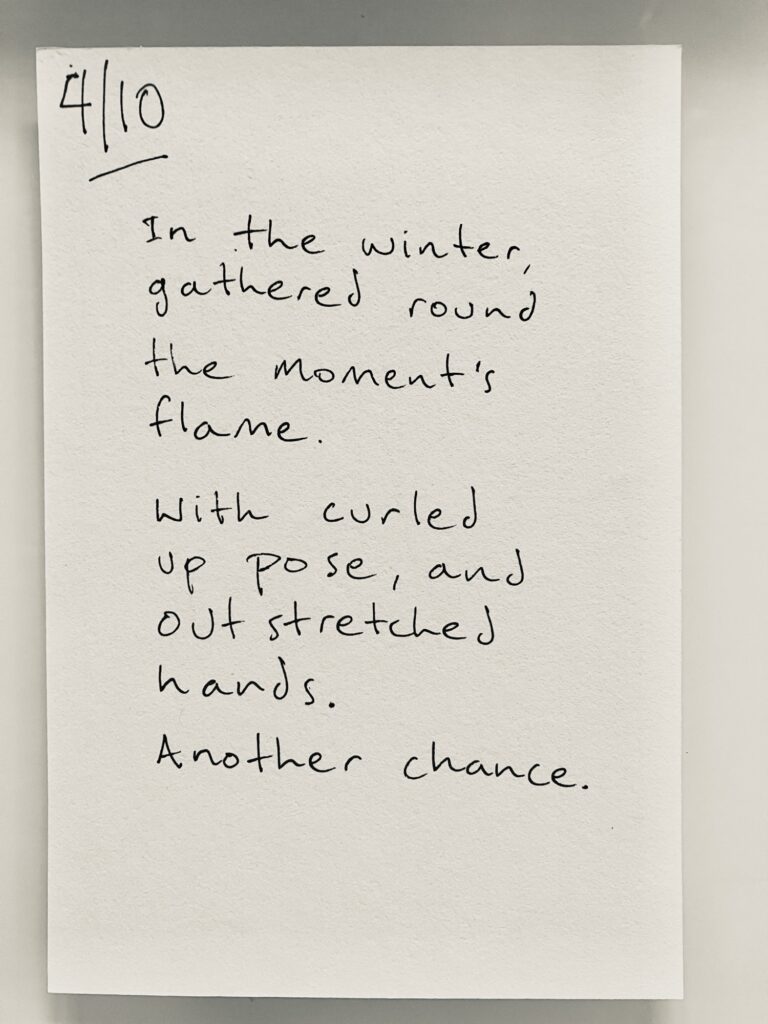 4/10
In the winter,
gathered round
the moment's
flame.
With curled
up pose, and
outstretched
hands.
Another chance.